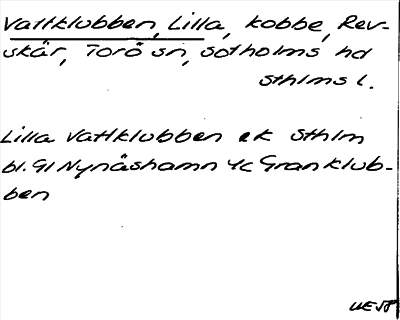 Vattklubben, Lilla, kobbe, Rev-
skär, Torö sn, Sotholms hd
Sthlms l.
Lilla Vattklubben ek Sthlm
bl. 91 Nynäshamn 4c Granklub-
ben